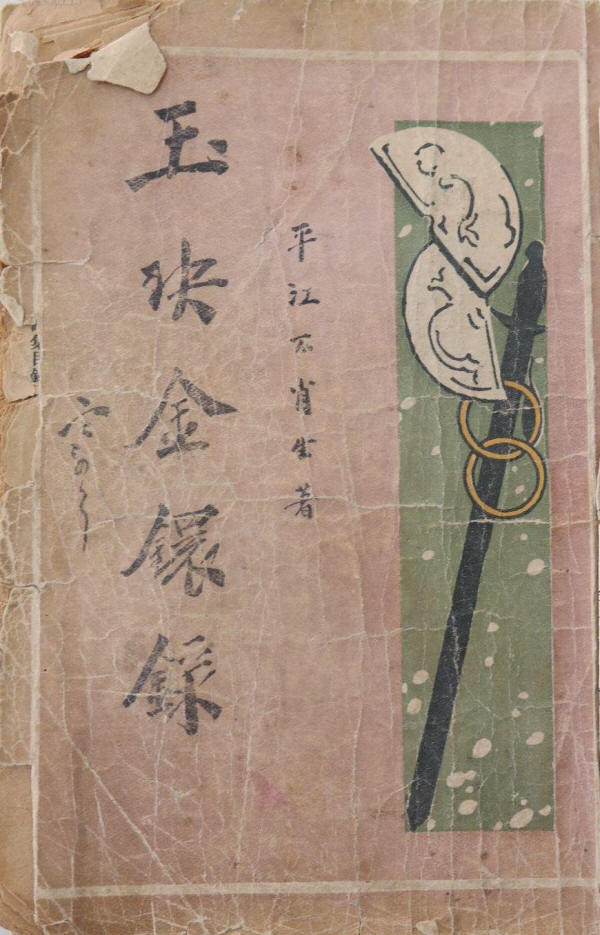 平江不肖生著
玉玦金鐶錄